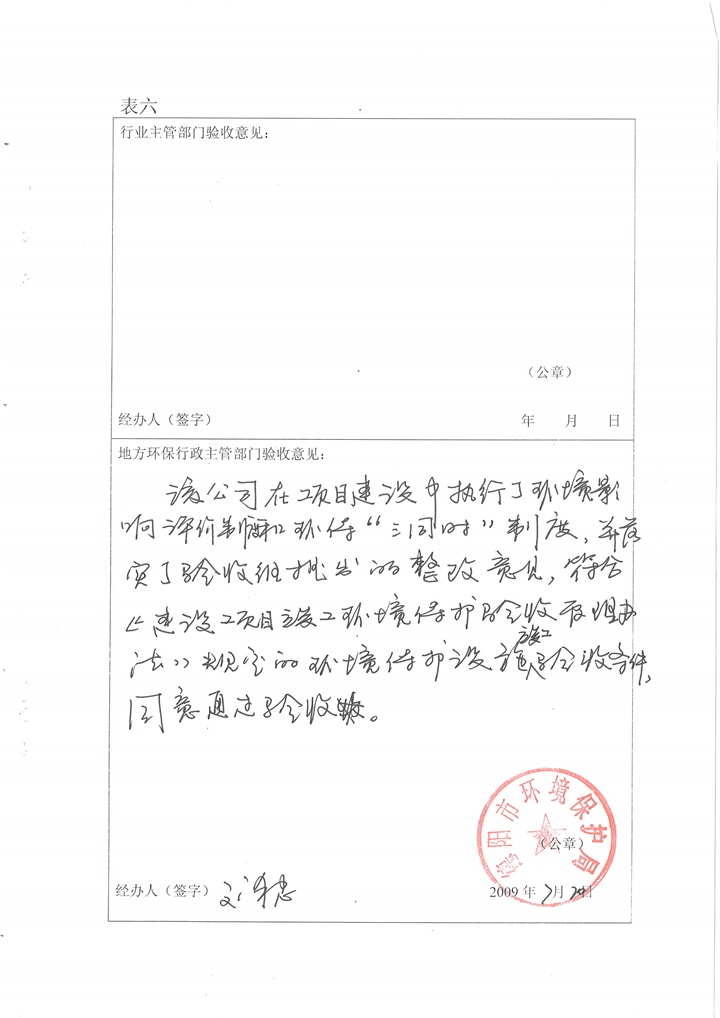 表六
行业主管部门验收意见:
（公章）
经办人（签字）
年 月 日
地方环保行政主管部门验收意见:
该公司在工项目建设中执行了环境影
响评价制度和环保“三同时”制度，并落
实了验收组提出的整改意见，符合
《建设工项目竣工环境保护验收管理办
竣工
法》规定的环境保护设施验收条件，
同意通过验收。
阳市环境保护局
（公章）
经办人（签字）
2009 年 7月 日